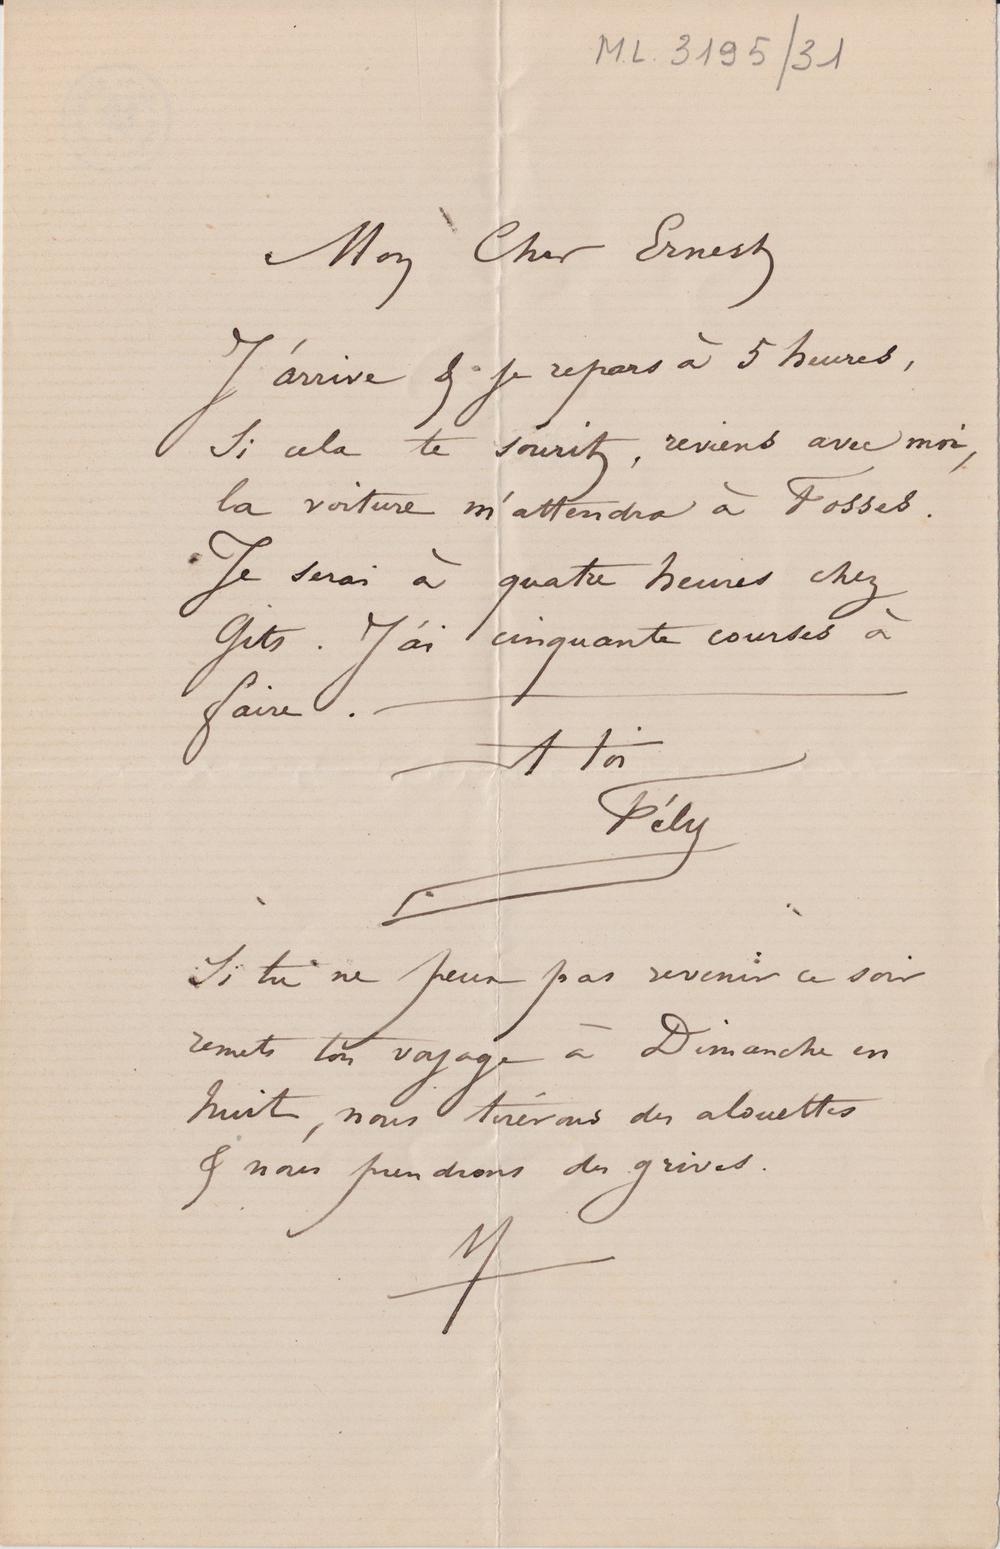 M.L. 3195/31
Mon Cher Ernest
J'arrive & je repars à 5 heures,
Si cela te sourit, reviens avec moi,
la voiture m'attendra à Fosses.
Je serai à quatre heures chez
Gits. J'ai cinquante courses à
faire.
A toi
Fély
Si tu ne peux pas revenir ce soir
remets ton voyage à Dimanche en
huit, nous tirérons des alouettes
& nous prendrons des grives.